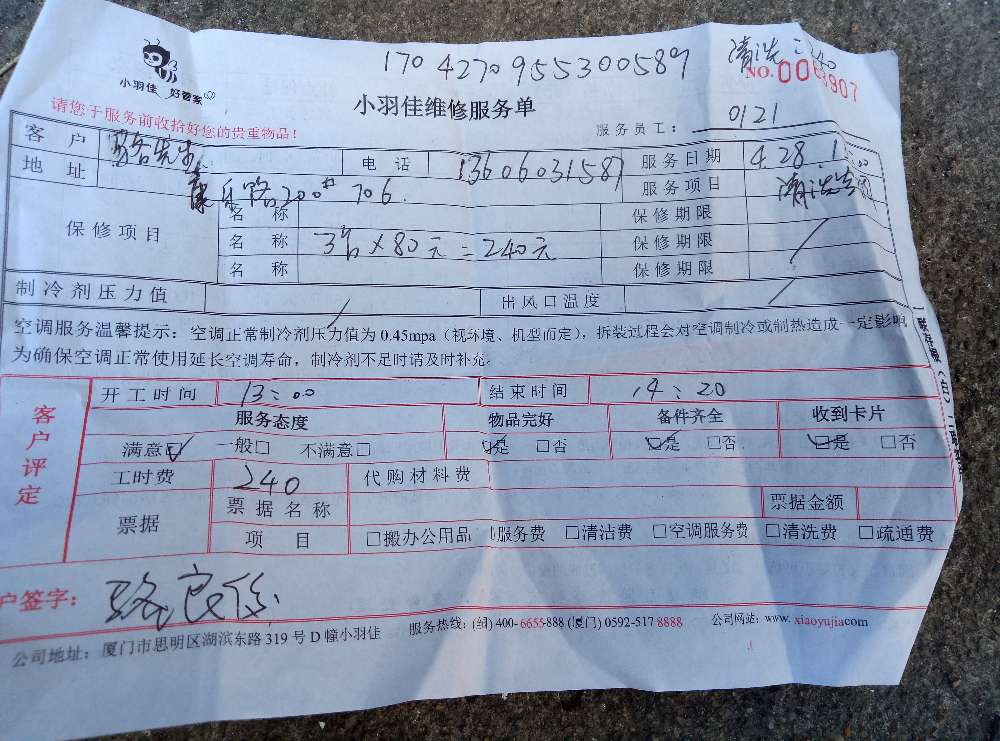 1704270955300589
清洗 240
小羽佳 好管家
NO.
请您于服务前收拾好您的贵重物品！
小羽佳维修服务单
服务员工： 0121
客 户 电 话 13606031587 服务日期 4.28.
地 址 康乐路200# 706. 服务项目 清洗
保修项目 名 称 保修期限
名 称 3台×80元=240元 保修期限
名 称 保修期限
制冷剂压力值 出风口温度
空调服务温馨提示：空调正常制冷剂压力值为 0.45mpa（视环境、机型而定），拆装过程会对空调制冷或制热造成一定影响
为确保空调正常使用延长空调寿命，制冷剂不足时请及时补充。
客户评定
开工时间 13:00 结束时间 14:20
服务态度 物品完好 备件齐全 收到卡片
满意☑ 一般□ 不满意□ ☑是 □否 ☑是 □否 ☑是 □否
工时费 240 代购材料费
票据 票据名称 票据金额
项 目 □搬办公用品 服务费 □清洁费 □空调服务费 □清洗费 □疏通费
户签字：
公司地址：厦门市思明区湖滨东路 319 号 D 幢小羽佳 服务热线：(全国) 400-6655-888 (厦门) 0592-517 8888 公司网站：www.xiaoyujia.com